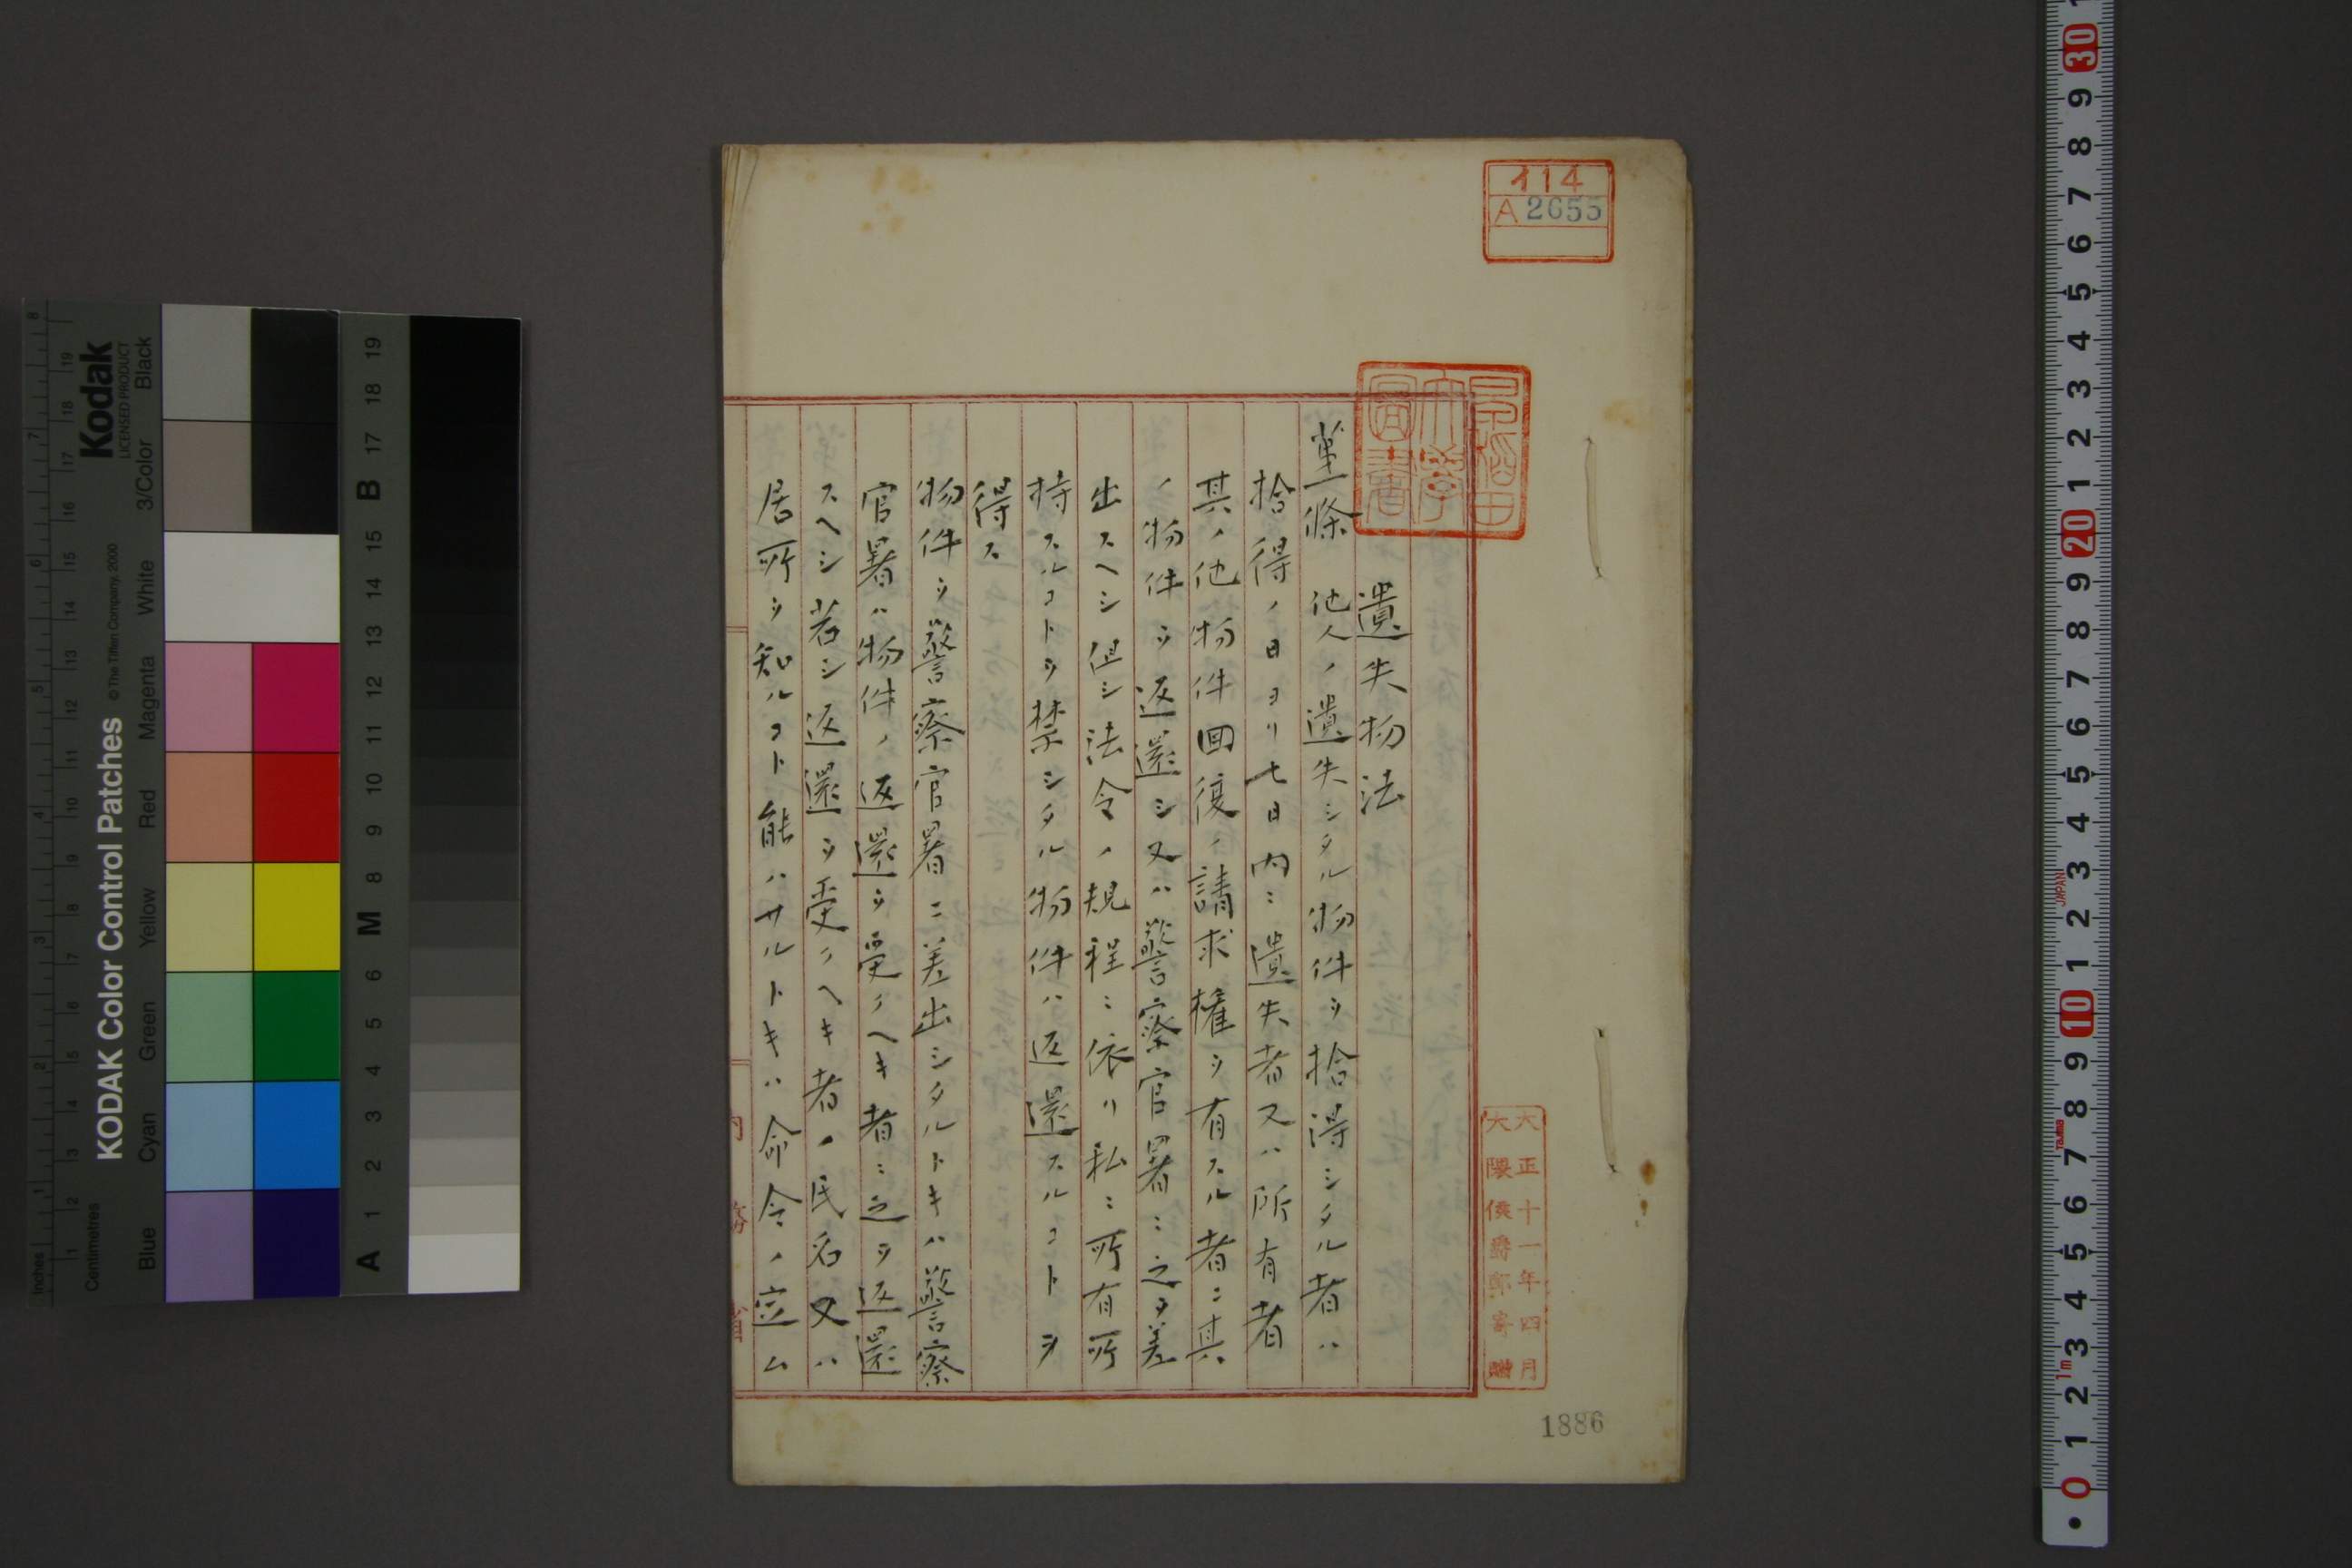 イ14
A 2655
早稲田
大學
圖書
遺失物法
第一條 他人ノ遺失シタル物件ヲ拾得シタル者ハ
拾得ノ日ヨリ七日内ニ遺失者又ハ所有者
其ノ他物件回復ノ請求権ヲ有スル者ニ其
ノ物件ヲ返還シ又ハ警察官署ニ之ヲ差
出スヘシ但シ法令ノ規程ニ依リ私ニ所有所
持スルコトヲ禁シタル物件ハ返還スルコトヲ
得ス
物件ヲ警察官署ニ差出シタルトキハ警察
官署ハ物件ノ返還ヲ受クヘキ者ニ之ヲ返還
スヘシ若シ返還ヲ受クヘキ者ノ氏名又ハ
居所ヲ知ルコト能ハサルトキハ命令ノ定ム
内務省
大正十一年四月
大隈侯爵邸寄贈
1886
Kodak
LICENSED PRODUCT
KODAK Color Control Patches
© The Tiffen Company, 2000
Inches
Centimetres
Blue
Cyan
Green
Yellow
Red
Magenta
White
3/Color
Black
A 1 2 3 4 5 6 M 8 9 10 11 12 13 14 15 B 17 18 19
JAPAN
Tajima
1m